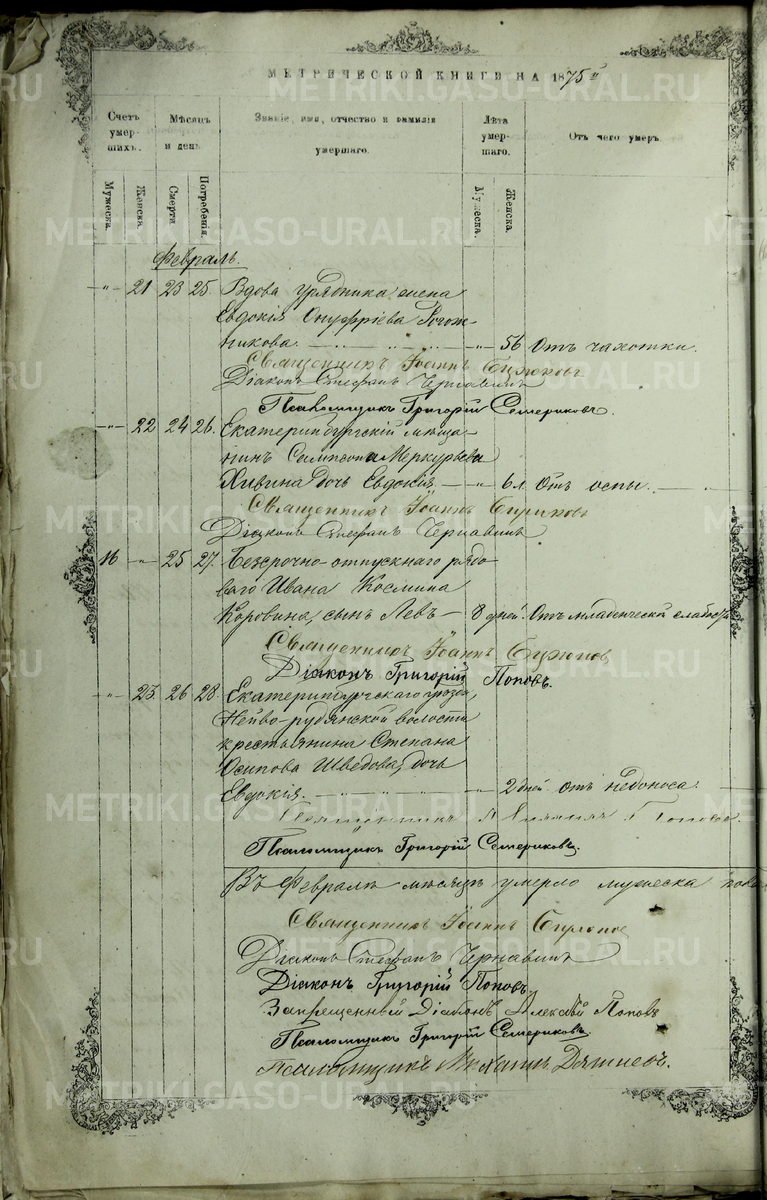 МЕТРИЧЕСКОЙ КНИГИ НА 1875 й
Счетъ умершихъ.
Мѣсяцъ и день
Званіе, имя, отчество и фамилія умершаго.
Лѣта умершаго.
Отъ чего умеръ
Мужеска. Женска. Смерти. Погребенія. Мужеска. Женска.
Февраль.
-"- 21 23 25. Вдова урядника жена
Евдокія Онуфріева Рогож-
никова. - " - 56 Отъ чахотки.
Священникъ Іоаннъ
Діаконъ Стефанъ Чернавинъ
Псаломщикъ Григорій Семериковъ.
-"- 22 24 26. Екатеринбургскій мѣща-
нинъ Сампсона Меркурьева
Хивина дочь Евдокія. - " - 6 л. Отъ оспы. -
Священникъ Іоаннъ
Діаконъ Стефанъ Чернавинъ
16 -"- 25 27. Безсрочно-отпускнаго рядо-
ваго Ивана Космина
Коровина, сынъ Левъ - 8 дней. Отъ младенческой слабости
Священникъ Іоаннъ
Діаконъ Григорій Поповъ.
-"- 23. 26 28. Екатеринбургскаго уѣзда,
Нейво-рудянской волости
крестьянина Стефана
Осипова Шведова, дочь
Евдокія. - " - 2 дней отъ недоноса. -
Священникъ Поповъ.
Псаломщикъ Григорій Семериковъ.
Въ Февралѣ мѣсяцѣ умерло мужеска пола
Священникъ Іоаннъ
Діаконъ Стефанъ Чернавинъ
Діаконъ Григорій Поповъ.
Запрещенный Діаконъ Алексѣй Поповъ
Псаломщикъ Григорій Семериковъ.
Псаломщикъ
METRIKI.GASO-URAL.RU